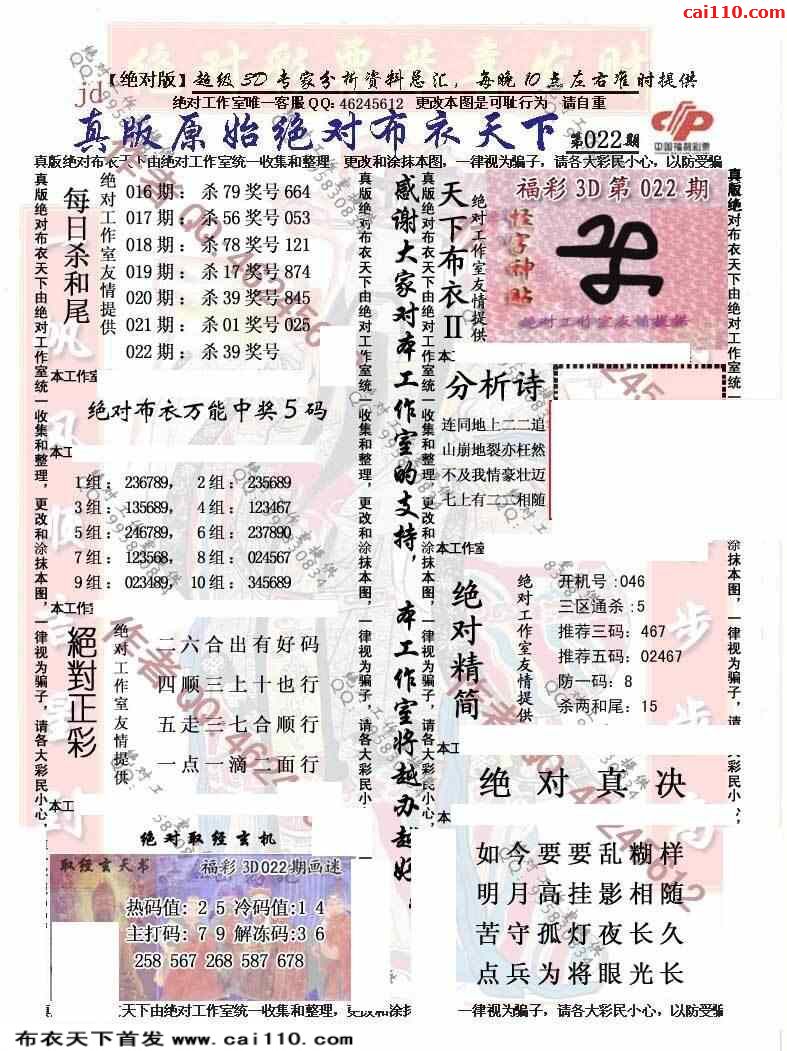 cai110.com
【绝对版】超级3D专家分析资料总汇，每晚10点左右准时提供
jd
绝对工作室唯一客服QQ：46245612 更改本图是可耻行为 请自重
真版原始绝对布衣天下 第022期
中国福利彩票
真版绝对布衣天下由绝对工作室统一收集和整理，更改和涂抹本图，一律视为骗子，请各大彩民小心，以防受骗
每日杀和尾
绝对工作室友情提供
016期：杀79奖号664
017期：杀56奖号053
018期：杀78奖号121
019期：杀17奖号874
020期：杀39奖号845
021期：杀01奖号025
022期：杀39奖号
本工作室
绝对布衣万能中奖5码
1组：236789， 2组：235689
3组：135689， 4组：123467
5组：246789， 6组：237890
7组：123568， 8组：024567
9组：023489， 10组：345689
本工作室
絕對正彩
绝对工作室友情提供
二六合出有好码
四顺三上十也行
五走三七合顺行
一点一滴二面行
本工
绝对取经玄机
取经玄天书 福彩3D022期画谜
热码值：2 5 冷码值：1 4
主打码：7 9 解冻码：3 6
258 567 268 587 678
真版绝对布衣天下由绝对工作室统一收集和整理，更改和涂抹本图，一律视为骗子，请各大彩民小心
感谢大家对本工作室的支持，本工作室将越办越好
天下布衣II
绝对工作室友情提供
福彩3D第022期
怪字神贴
绝对工作室友情提供
分析诗
连同地上二二追
山崩地裂亦枉然
不及我情豪壮迈
七上有二二相随
本工作室
绝对精简
绝对工作室友情提供
开机号：046
三区通杀：5
推荐三码：467
推荐五码：02467
防一码：8
杀两和尾：15
本工
绝对真决
如今要要乱糊样
明月高挂影相随
苦守孤灯夜长久
点兵为将眼光长
天下由绝对工作室统一收集和整理，更改和涂抹
一律视为骗子，请各大彩民小心，以防受骗
布衣天下首发 www.cai110.com